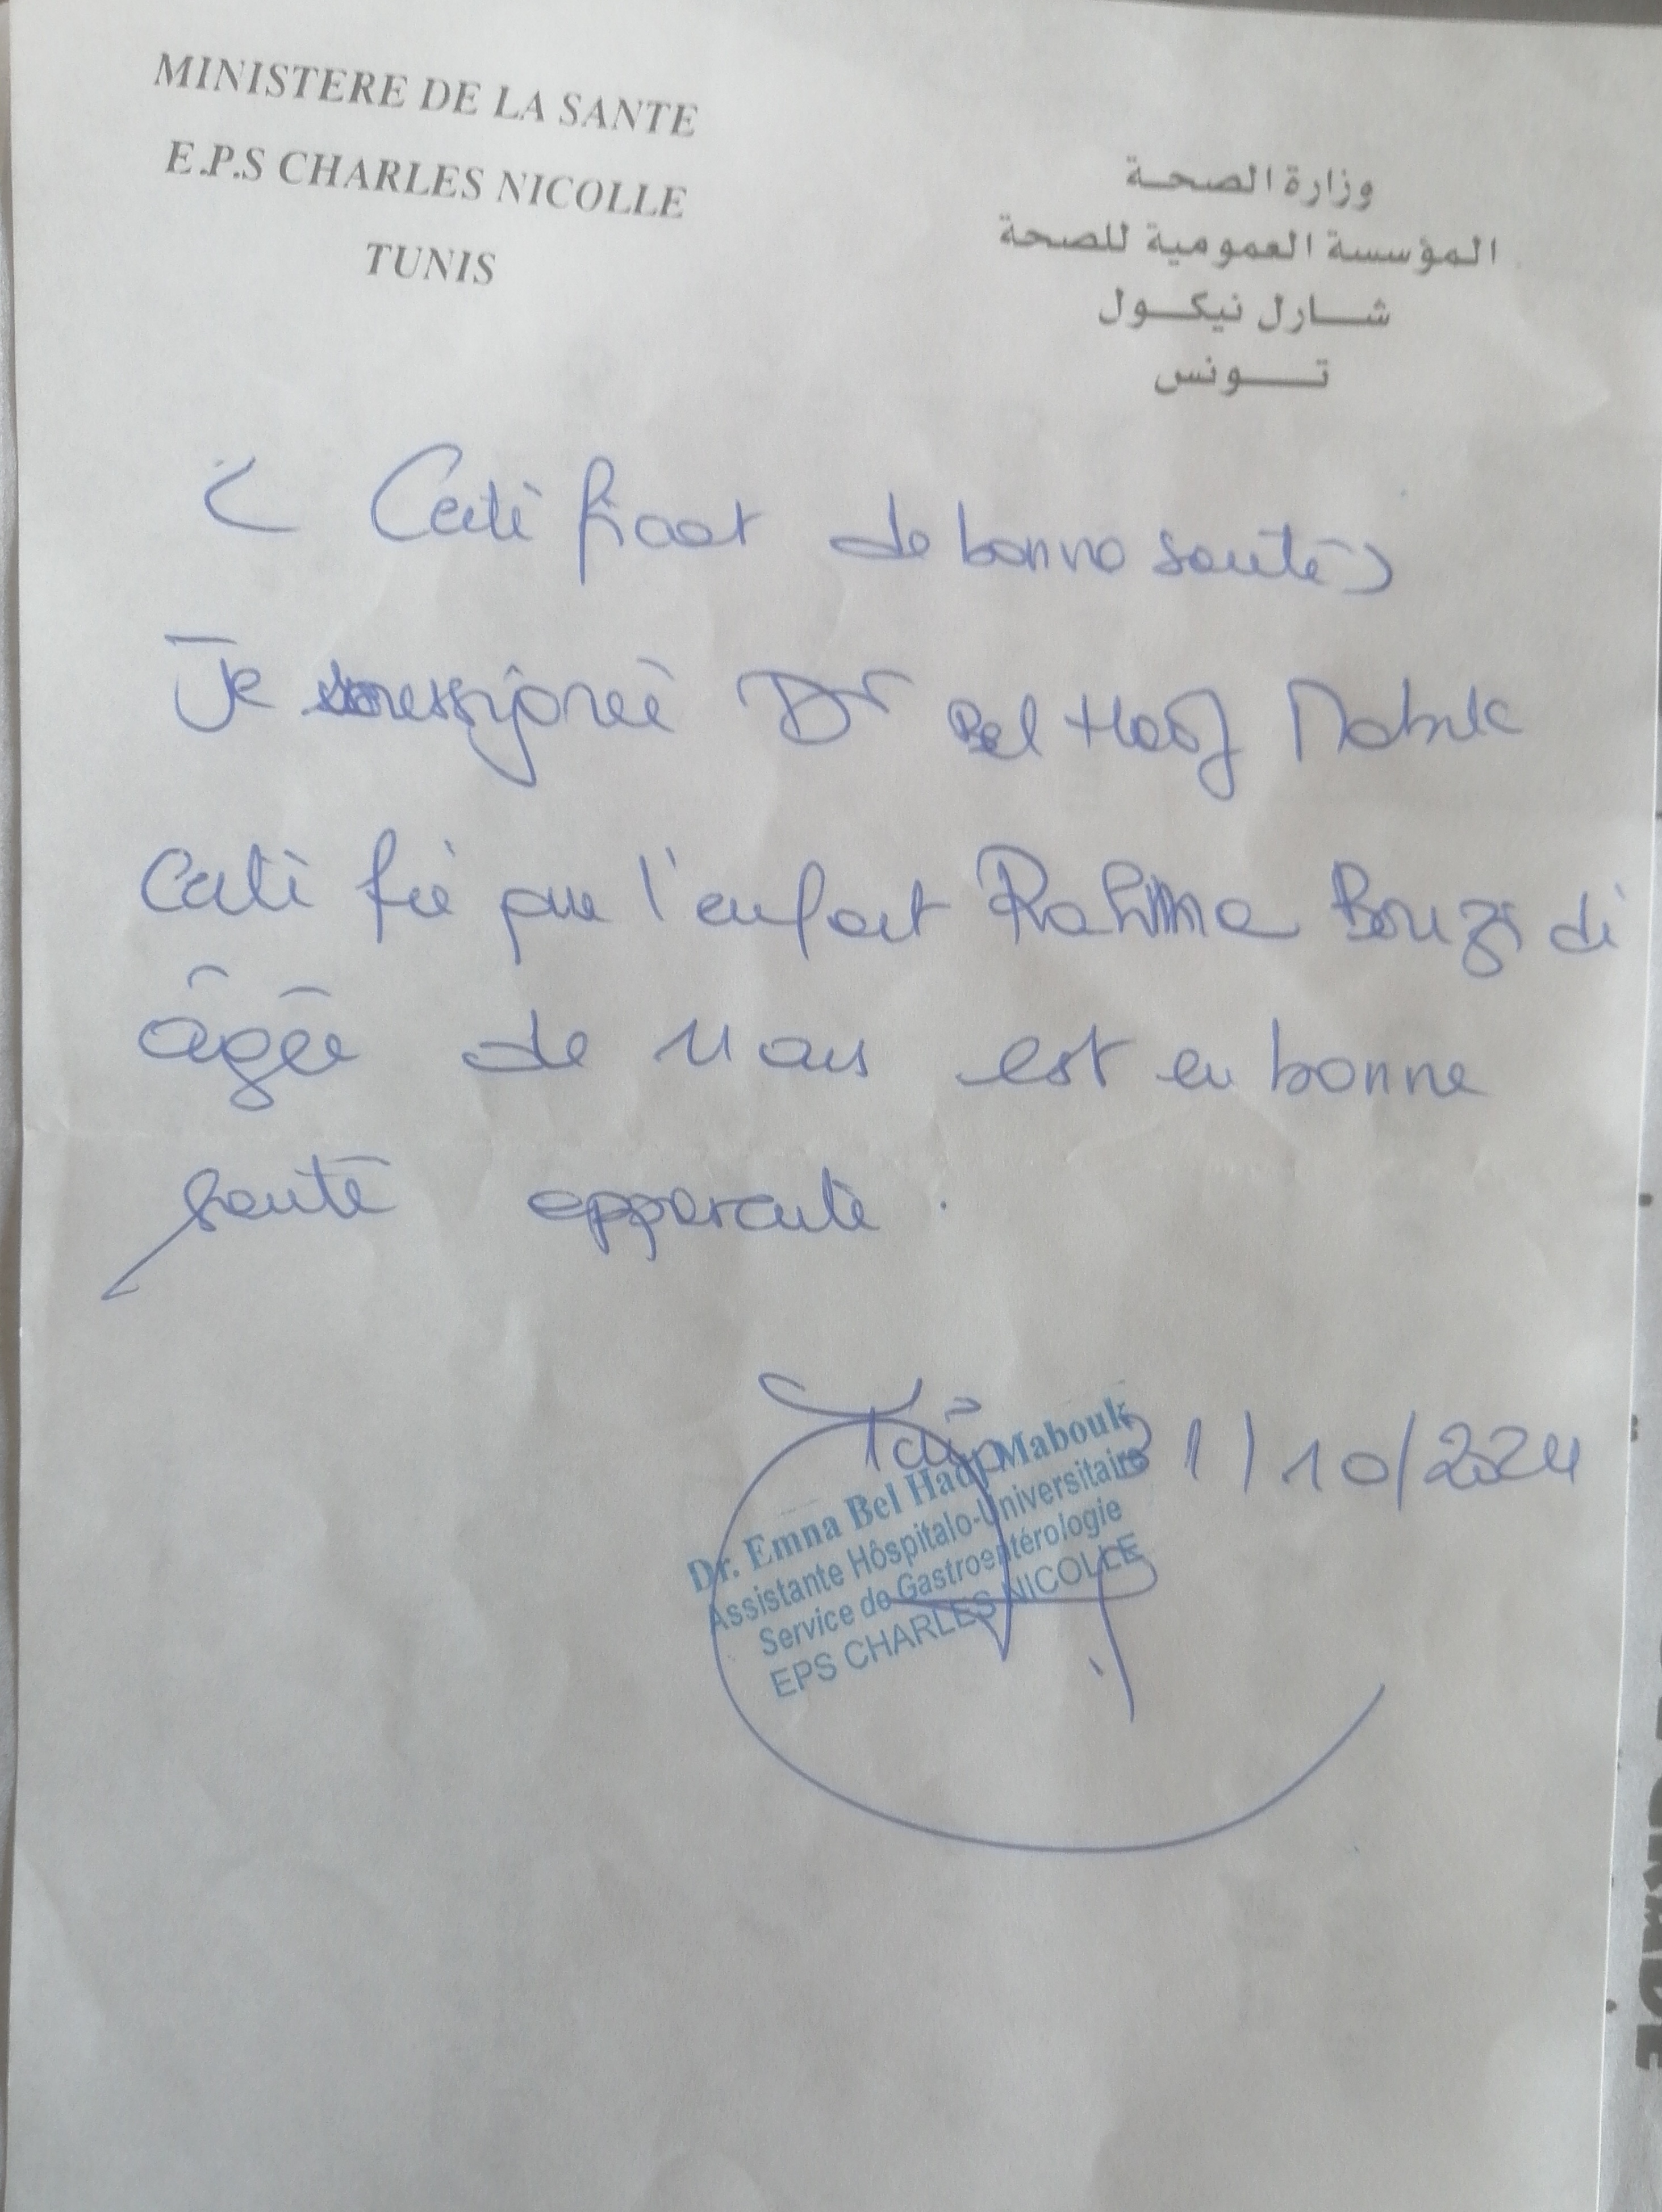 MINISTERE DE LA SANTE
E.P.S CHARLES NICOLLE
TUNIS
وزارة الصحة
المؤسسة العمومية للصحة
شارل نيكول
تونس
Certificat de bonne santé
Je soussignée Dr Bel Hadj Mabrouk
Certifie que l'enfant Rahma Bouzidi
âgée de 11 ans est en bonne
santé apparente.
31/10/2024
Dr. Emna Bel Hadj Mabouk
Assistante Hôspitalo-Universitaire
Service de Gastroentérologie
EPS CHARLES NICOLLE